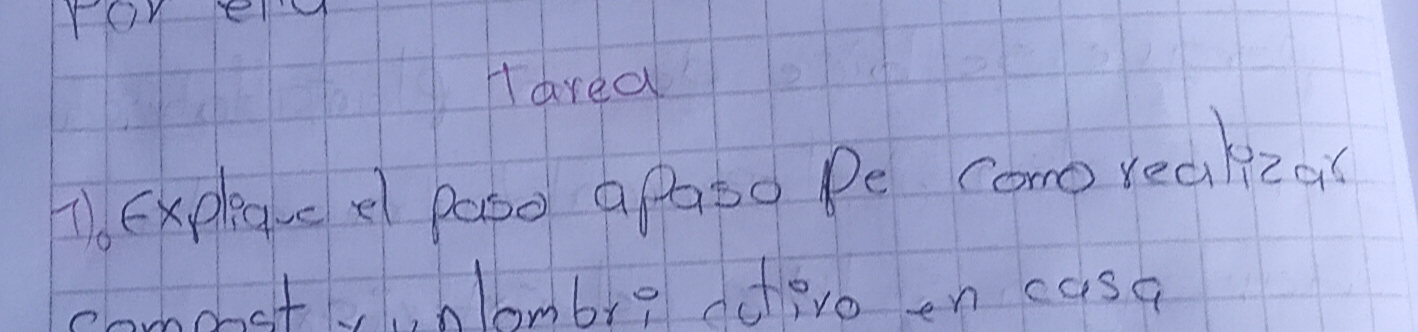 Por ello
Tarea
1). Explique el paso apaso De como realizar
compost y un lombri ctivo en casa